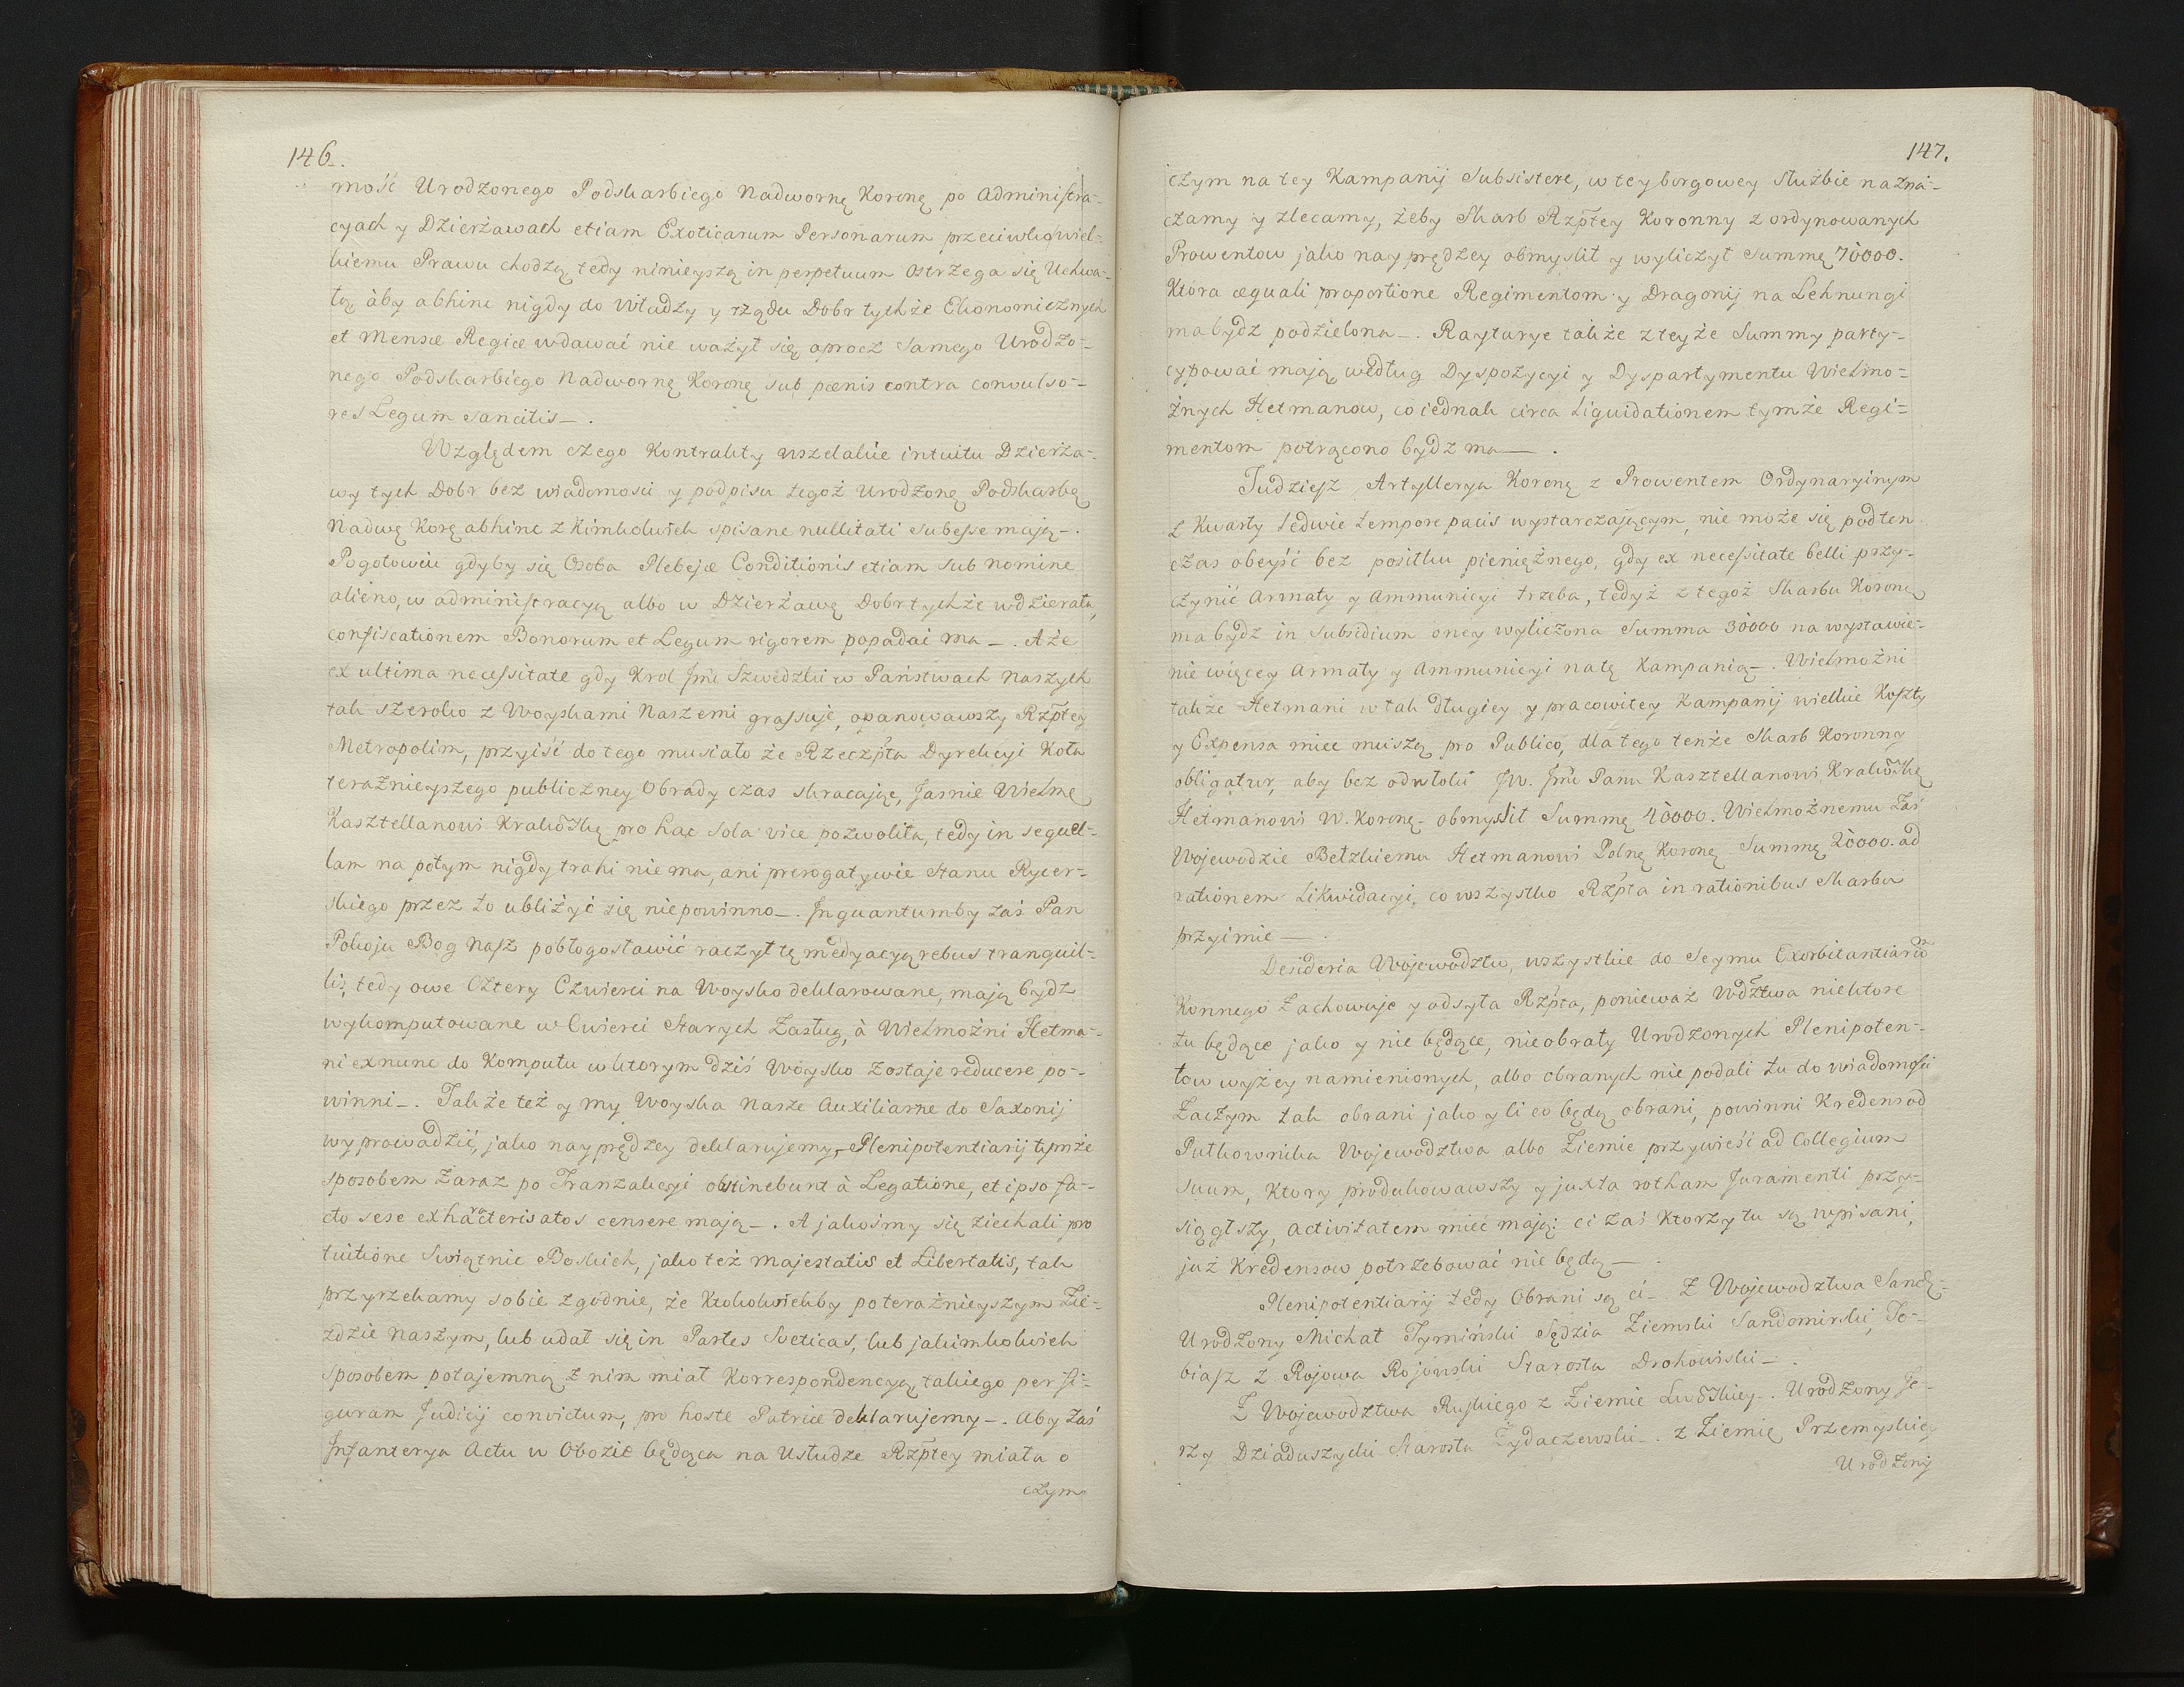 146.
mość Urodzonego Podskarbiego Nadwornę Koronę po Administra-
cyach y Dzierżawach etiam Exoticarum Personarum przeciwko wiel-
kiemu Prawu chodzą, tedy ninieyszą in perpetuum ostrzega się Uchwa-
łą, aby abhinc nigdy do Władzy y rządu Dobr tychże Ekonomicznych
et Mensæ Regiæ wdawać nie ważył się oprocz samego Urodzo-
nego Podskarbiego Nadwornę Koronę sub pœnis contra convulso-
res Legum sancitis.
Względem czego Kontrakty wszelakie intuitu Dzierża-
wy tych Dobr bez wiadomosci y podpisu tegoż Urodzonę Podskarbę
Nadwę Korę abhinc z kimkolwiek spisane nullitati subesse mają.
Pogotowiu gdyby się Osoba Plebejæ Conditionis etiam sub nomine
alieno, w administracyą albo w Dzierżawę Dobr tychże wdzierała,
confiscationem Bonorum et Legum rigorem popadać ma. A że
ex ultima necessitate gdy Krol Jmć Szwedzki w Państwach Naszych
tak szeroko z Woyskami Naszemi grassuje, opanowawszy Rzptey
Metropolim, przyiść do tego musiało że Rzeczpta Dyrekcyi Koła
teraznieyszego publiczney Obrady czas skracając, Jasnie Wielmę
Kasztellanowi Krakowskę pro hac sola vice pozwoliła, tedy in sequel-
lam na potym nigdy trahi nie ma, ani prerogatywie Stanu Rycer-
skiego przez to ubliżyć się niepowinno. Inquantumby zaś Pan
Pokoju Bog Nasz pobłogosławić raczył tę medyacyą rebus tranquil-
lis, tedy owe Cztery Czwierci na Woysko deklarowane, mają bydź
wykomputowane w Cwierci Starych Zasług, à Wielmożni Hetma-
ni exnunc do Komputu w ktorym dziś Woysko zostaje reducere po-
winni. Także też y my Woyska Nasze Auxiliarne do Saxonij
wyprowadzić, jako nayprędzey deklarujemy, Plenipotentiarij tymże
sposobem Zaraz po Tranzakcyi obstinebunt à Legatione, et ipso fa-
cto sese exharacterisatos censere mają. A jakośmy się ziechali pro
tuitione Swiątnic Boskich, jako też Majestatis et Libertatis, tak
przyrzekamy sobie zgodnie, że Ktokolwiekby poteraźnieyszym Zie-
zdzie Naszym, lub udał się in Partes Sveticas, lub jakimkolwiek
sposobem potajemną z nim miał Korrespondencyą, takiego per fi-
guram Judicij convictum, pro hoste Patriæ deklarujemy. Aby zaś
Infanterya Actu w Obozie będąca na Usłudze Rzptey miała o
czym
147.
czym na tey Kampanij Subsistere, w tey borgowey Służbie nazna-
czamy y zlecamy, żeby Skarb Rzptey Koronny z ordynowanych
Prowentow jako nay prędzey obmyslił y wyliczył Summę 70000.
Ktora æquali proportione Regimentom y Dragonij na Lehnungi
ma bydz podzielona. Raytarye także z teyże Summy party-
cypować mają według Dyspozycyi y Dyspartymentu Wielmo-
żnych Hetmanow, co iednak circa Liquidationem tymże Regi-
mentom potrącono bydz ma.
Tudziesz Artyllerya Koronę z Prowentem Ordynaryinym
z Kwarty ledwie tempore pacis wystarczającym, nie może się pod ten
czas obeyść bez posiłku pieniężnego, gdy ex necessitate belli przy-
czynić Armaty y Ammunicyi trzeba, tedyż z tegoż Skarbu Koronę
ma bydz in subsidium oney wyliczona Summa 30000 na wystawie-
nie więcey Armaty y Ammunicyi na tę Kampanią. Wielmożni
także Hetmani w tak długiey y pracowitey Kampanij wielkie Koszty
y Expensa miec muiszą pro Publico, dla tego tenże Skarb Koronny
obligatur, aby bez odwłoki JW. Jmć Panu Kasztellanowi Krakowskę
Hetmanowi W. Koronę obmyslił Summę 40000. Wielmożnemu Zaś
Wojewodzie Bełzkiemu Hetmanowi Polnę Koronę Summę 20000. ad
rationem Likwidacyi, co wszystko Rzpta in rationibus Skarbu
przyimie.
Desideria Wojewodztw, wszystkie do Seymu Exorbitantiarū
Konnego Zachowuje y odsyła Rzpta, ponieważ Wdztwa niektore
tu będące jako y nie będące, nieobrały Urodzonych Plenipoten-
tow wyżey namienionych, albo obranych nie podali tu do wiadomości
Zaczym tak obrani jako y ci co będą obrani, powinni Kredens od
Pułkownika Wojewodztwa albo Ziemie przywieść ad Collegium
suum, Ktory produkowawszy y juxta rotham Juramenti przy-
siągłszy, activitatem mieć mają: ci zaś Ktorzy tu są wpisani,
już Kredensow potrzebować nie będą.
Plenipotentiarij tedy Obrani są ci. Z Wojewodztwa Sandę-
Urodzony Michał Tymiński Sędzia Ziemski Sandomirski, To-
biasz z Rojowa Rojowski Starosta Drohowiski.
Z Wojewodztwa Ruskiego z Ziemie Lwowskiey. Urodzony Je-
rzy Dziaduszycki Starosta Żydaczewski. z Ziemię Przemyskiey
Urodzony